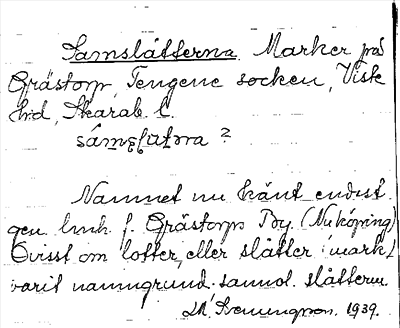 Samslåtterna. Marker på
Grästorp, Tengene socken, Viste
hd, Skarab. l.
Namnet nu känt endast
gen. lmh. f. Grästorps By. (Nuköping)
Ovisst om lotter, eller slåtter (mark)
varit namngrund. sannol. slåttern.
1939.